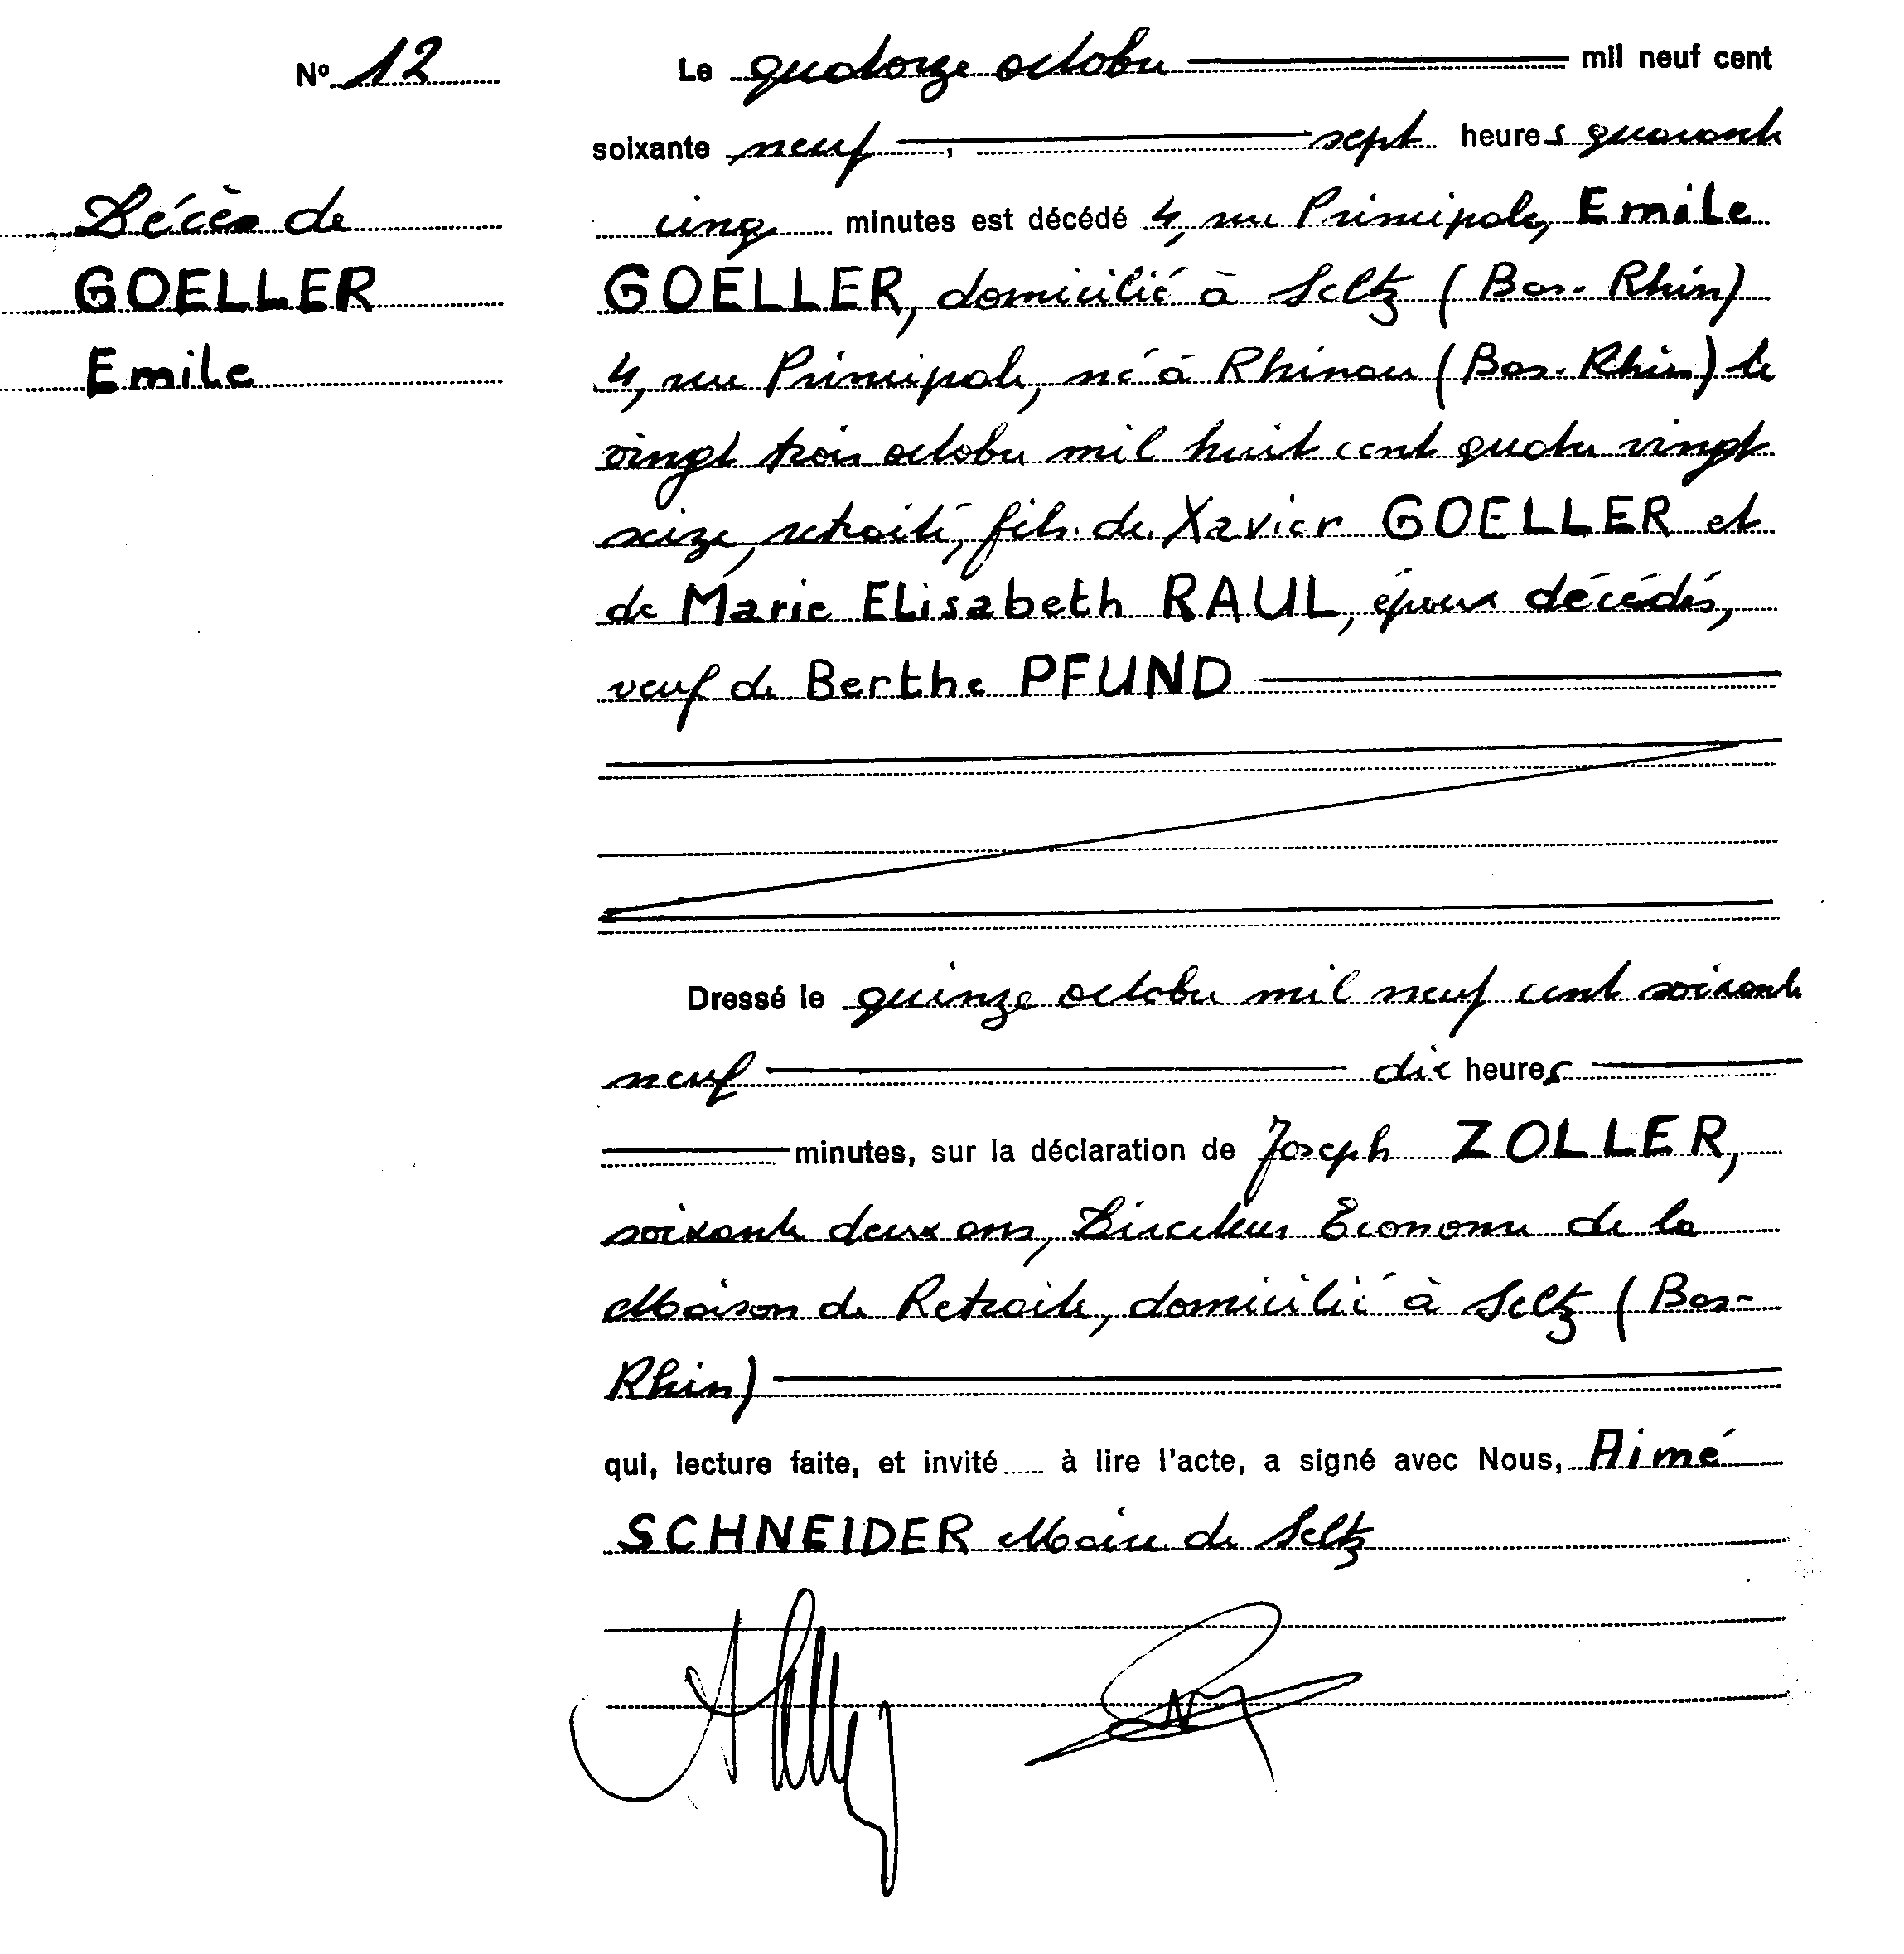 Nº 12
Le quatorze octobre mil neuf cent
soixante neuf, sept heures quarante
Décès de
cinq minutes est décédé 4, rue Principale, Emile
GOELLER
GOELLER, domicilié à Seltz (Bas-Rhin)
Emile
4, rue Principale, né à Rhinau (Bas-Rhin) le
vingt trois octobre mil huit cent quatre vingt
seize, retraité, fils de Xavier GOELLER et
de Marie Elisabeth RAUL, époux décédés,
veuf de Berthe PFUND
Dressé le quinze octobre mil neuf cent soixante
neuf dix heures
minutes, sur la déclaration de Joseph ZOLLER,
soixante deux ans, Directeur Econome de la
Maison de Retraite, domicilié à Seltz (Bas-
Rhin)
qui, lecture faite, et invité à lire l'acte, a signé avec Nous, Aimé
SCHNEIDER Maire de Seltz